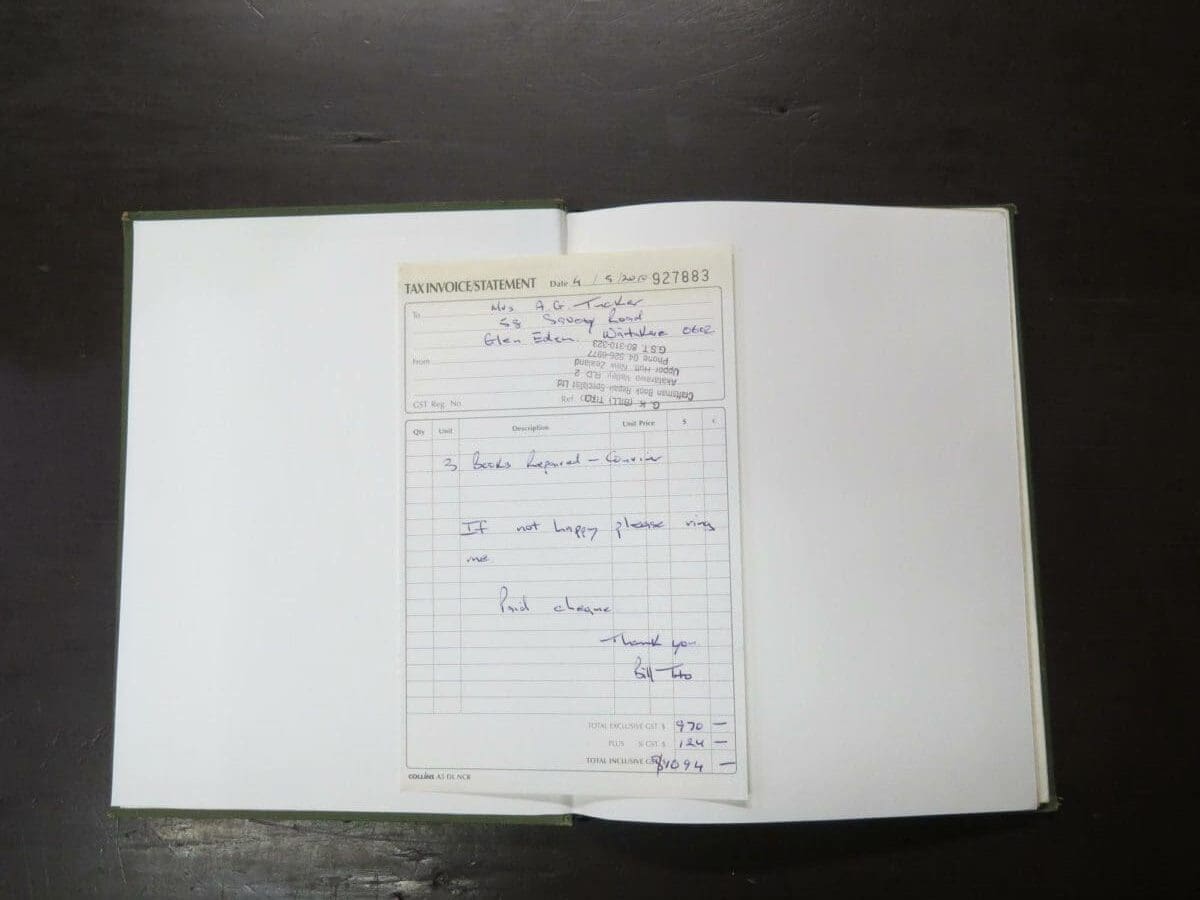 TAX INVOICE/STATEMENT Date 4 / 9 /2010 927883
To Mrs A. G. Tucker
58 Road
Glen Eden. Waitakere 0602
From
G.S.T. 80-310-323
Phone 04 526-6977
Upper Hutt New Zealand
Akatarawa Valley R.D 2
Craftsman Book Repair Specialist Ltd
G. K (BILL) TITO
GST Reg. No. Ref
Qty Unit Description Unit Price $ c
3 Books Repaired -
If not happy please ring
me.
Paid cheque
Thank you
Bill Tito
TOTAL EXCLUSIVE GST $ 970 —
PLUS % GST $ 124 —
TOTAL INCLUSIVE GST $1094 —
COLLINS A5 DL NCR